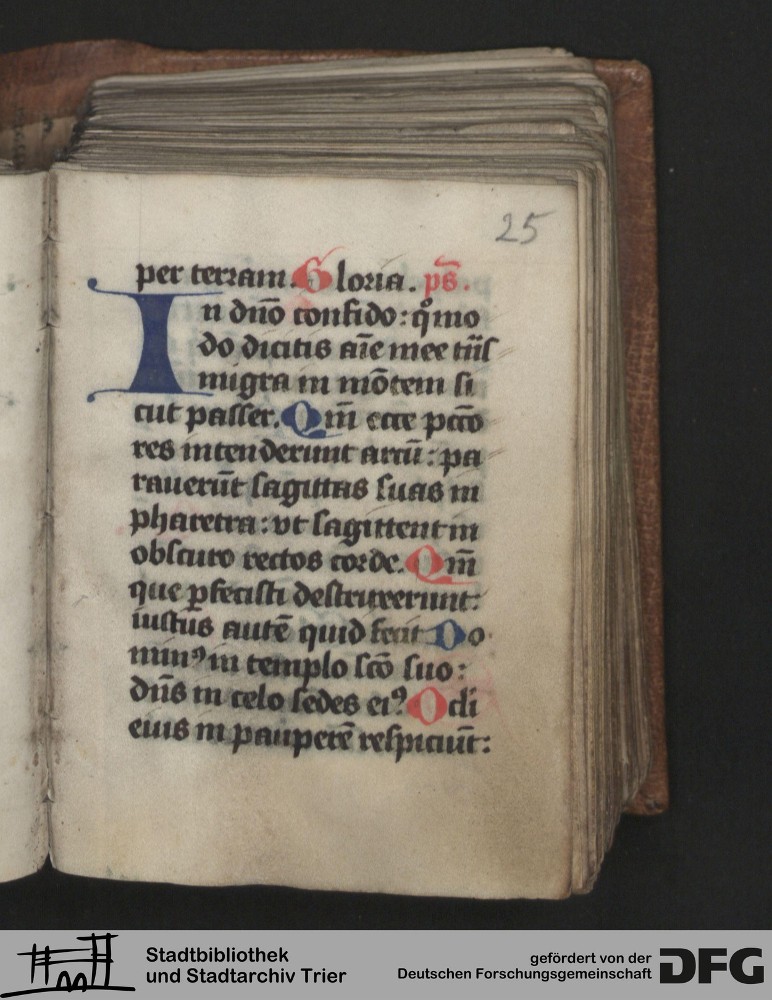 25
per terram. Gloria. ps̄.
In dn̄o confido: qͦmo
do dicitis aīe mee trā̄s
migra in mōtem si
cut passer. Qm̄ ecce pctō
res intenderunt arcū: pa
rauerūt sagittas suas in
pharetra: vt sagittent in
obscuro rectos corde. Qm̄
que ꝑfecisti destruxerunt:
iustus autē quid fecit Do
minꝰ in templo scō suo:
dn̄s in celo sedes eiꝰ Ocli
eius in pauperē respiciūt:
Stadtbibliothek
und Stadtarchiv Trier
gefördert von der
Deutschen Forschungsgemeinschaft
DFG